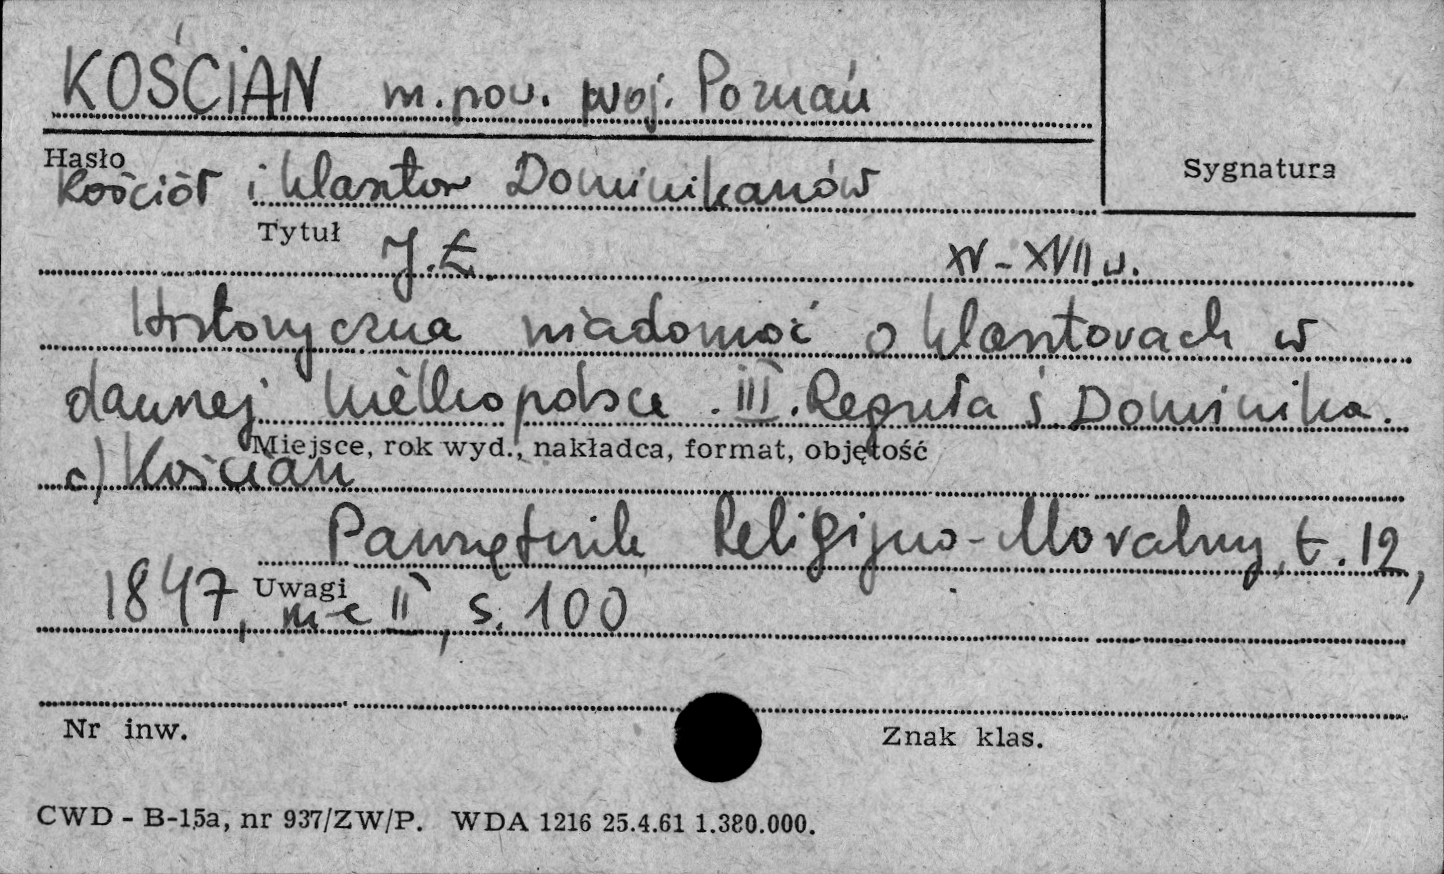 KOŚCIAN m. pow. woj. Poznań
Hasło
Sygnatura
Kościół i klasztor Dominikanów
Tytuł
J. Ł. XV-XVII w.
Historyczna wiadomość o klasztorach w
dawnej Wielkopolsce. III. Reguła ś. Dominika.
Miejsce, rok wyd., nakładca, format, objętość
c) Kościan
Pamiętnik Religijno-Moralny, t. 12,
Uwagi
1847, m-c II, s. 100
Nr inw.
Znak klas.
CWD - B-15a, nr 937/ZW/P. WDA 1216 25.4.61 1.380.000.